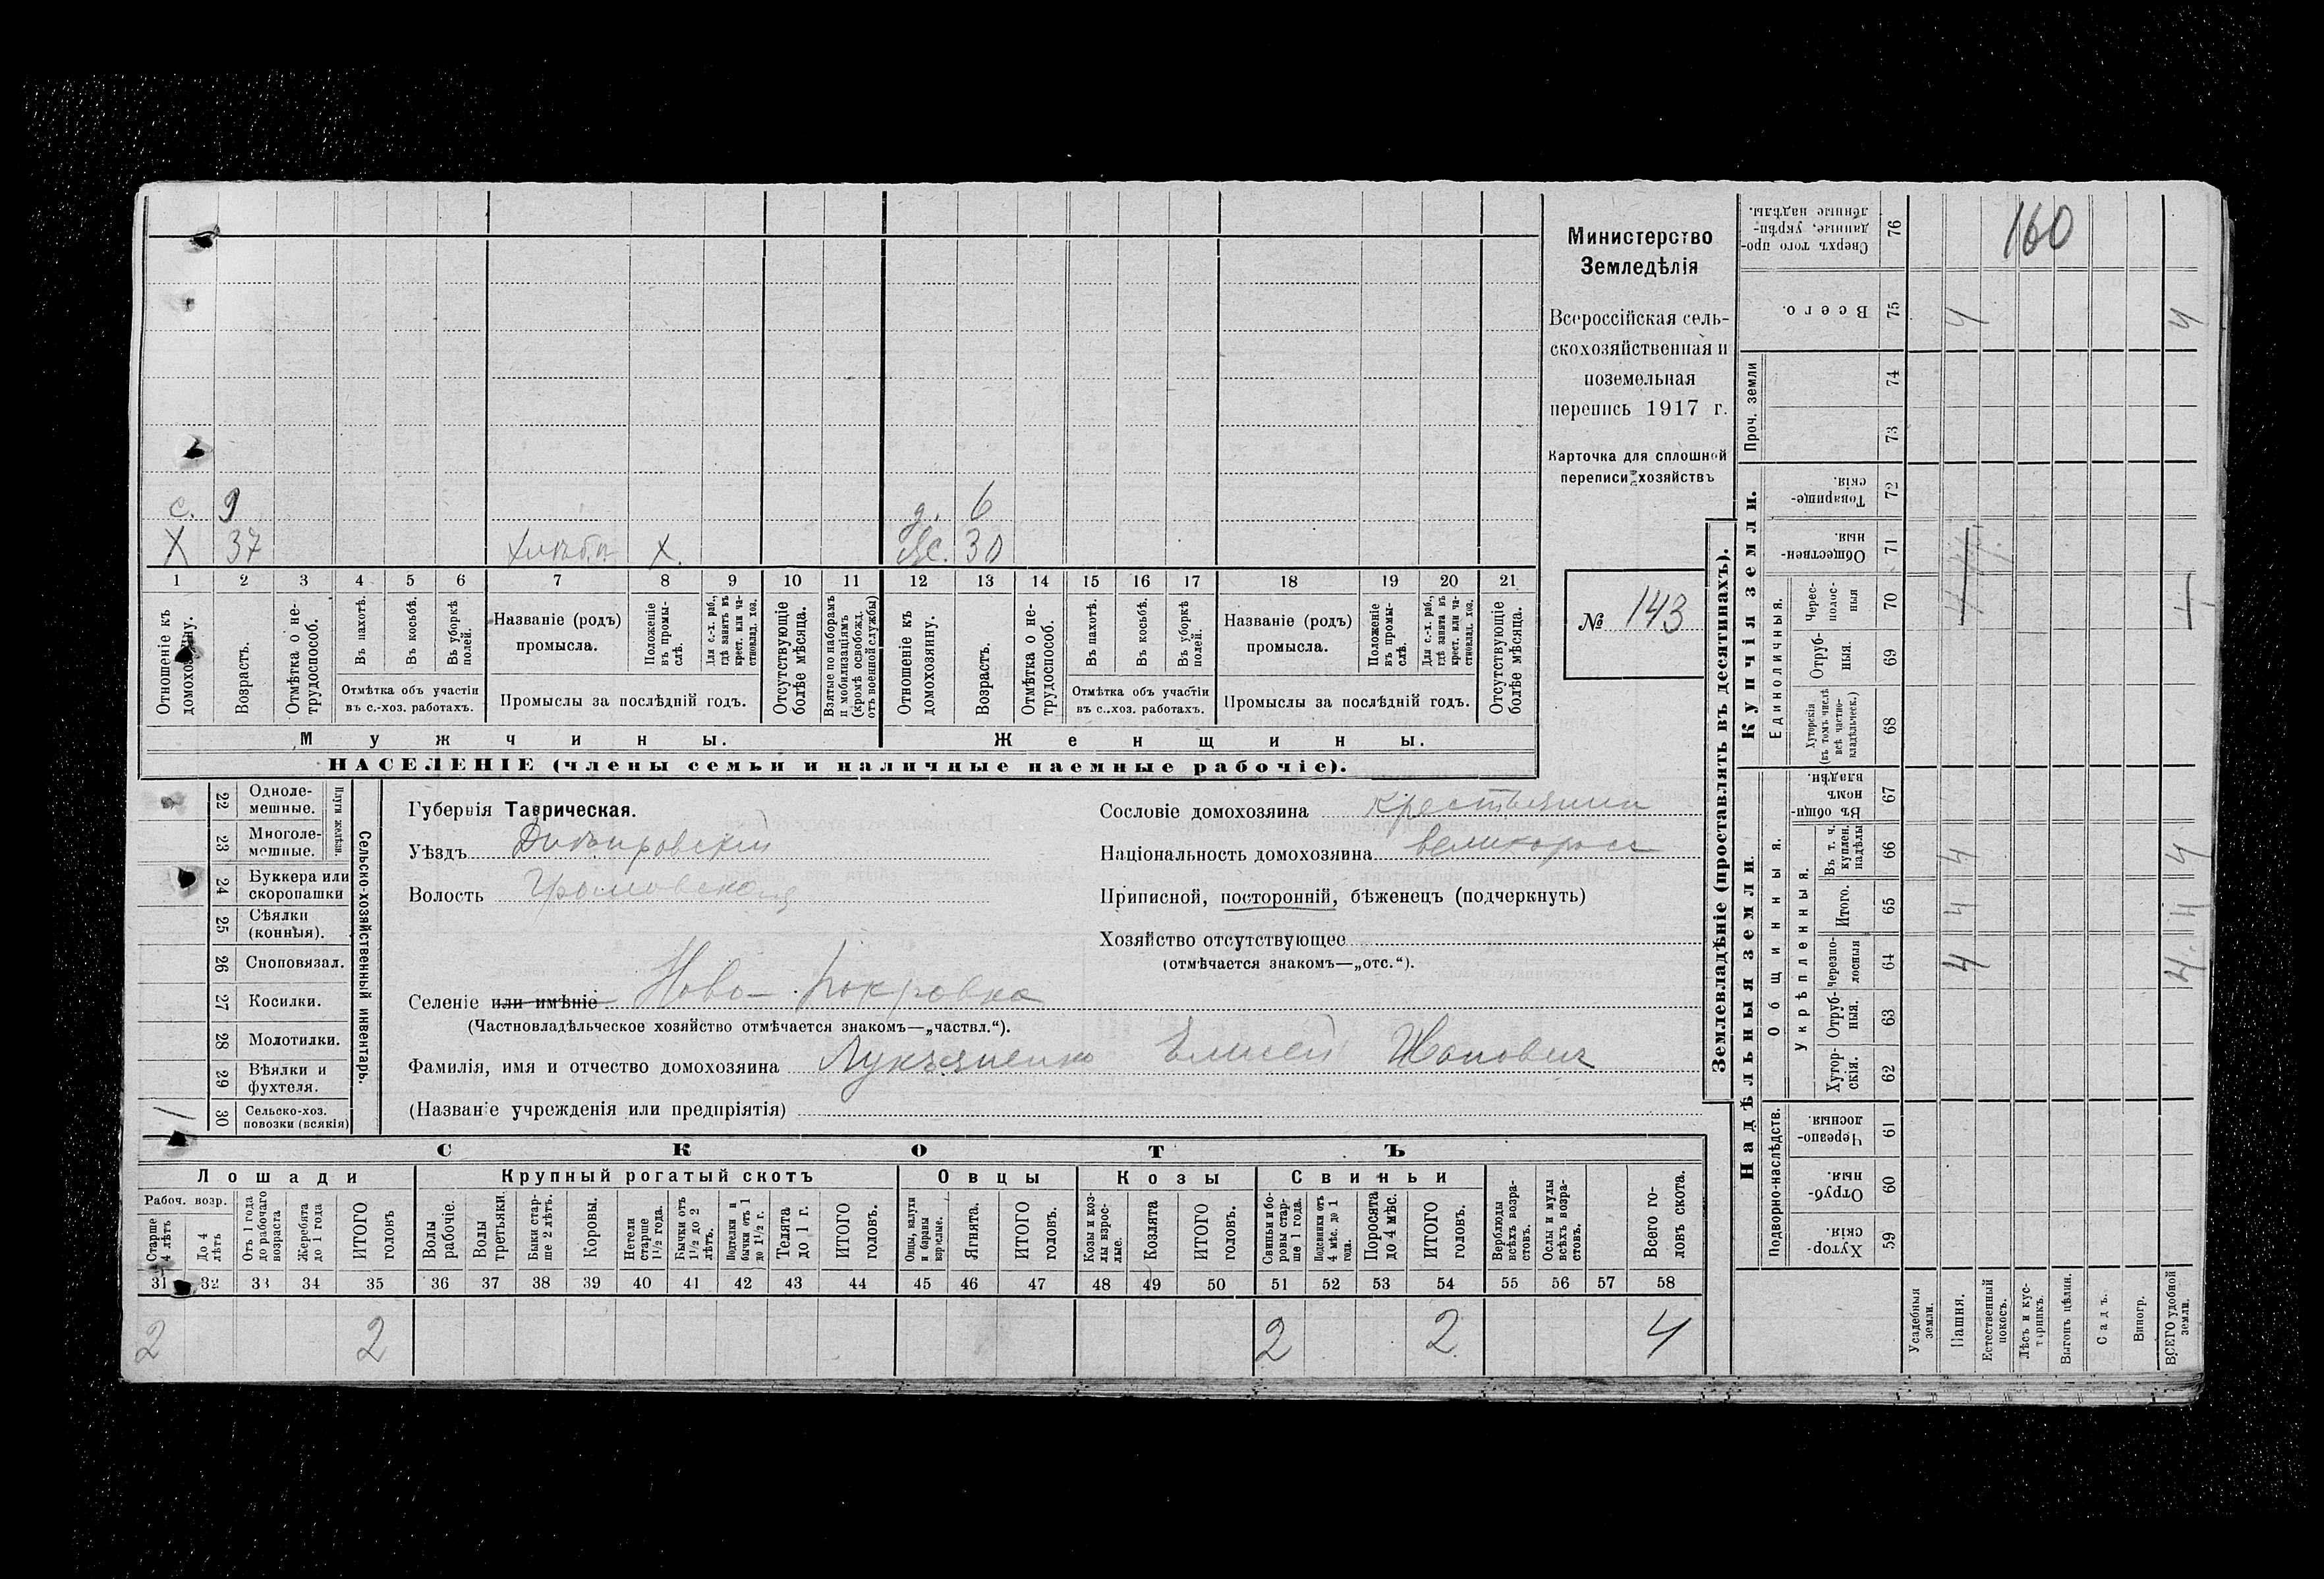 Министерство
Земледѣлія
Всероссійская сель-
скохозяйственная и
поземельная
перепись 1917 г.
Карточка для сплошной
переписи хозяйствъ
№ 143
с. 9
д. 6
X 37 X. 30
1 2 3 4 5 6 7 8 9 10 11 12 13 14 15 16 17 18 19 20 21
Отношеніе къ домохозяину.
Возрастъ.
Отмѣтка о не-трудоспособ.
Въ пахотѣ.
Въ косьбѣ.
Въ уборкѣ полей.
Отмѣтка объ участіи
въ с.-хоз. работахъ.
Названіе (родъ)
промысла.
Положеніе въ промы-слѣ.
Для с.-х. раб., гдѣ занятъ въ крест. или ча-стновлад. хоз.
Промыслы за послѣдній годъ.
Отсутствующіе болѣе мѣсяца.
Взятые по наборамъ и мобилизаціямъ (кромѣ освобожд. отъ военной службы)
Отношеніе къ домохозяину.
Возрастъ.
Отмѣтка о не-трудоспособ.
Въ пахотѣ.
Въ косьбѣ.
Въ уборкѣ полей.
Отмѣтка объ участіи
въ с.-хоз. работахъ.
Названіе (родъ)
промысла.
Положеніе въ промы-слѣ.
Для с.-х. раб., гдѣ занята въ крест. или ча-стновлад. хоз.
Промыслы за послѣдній годъ.
Отсутствующіе болѣе мѣсяца.
Мужчины.
Женщины.
НАСЕЛЕНІЕ (члены семьи и наличные наемные рабочіе).
Сельско-хозяйственный инвентарь.
Плуги желѣзн.
22 Одноле-мешные.
23 Многоле-мешные.
24 Буккера или скоропашки
25 Сѣялки (конныя).
26 Сноповязал.
27 Косилки.
28 Молотилки.
29 Вѣялки и фухтеля.
30 Сельско-хоз. повозки (всякія)
1
Губернія Таврическая.
Уѣздъ Днѣпровскій
Волость Громовская
Селеніе или имѣніе Ново-Покровка
(Частновладѣльческое хозяйство отмѣчается знакомъ—„частвл.“).
Фамилія, имя и отчество домохозяина Лукъяненко Елисей
(Названіе учрежденія или предпріятія)
Сословіе домохозяина крестьянин
Національность домохозяина великоросс
Приписной, посторонній, бѣженецъ (подчеркнуть)
Хозяйство отсутствующее
(отмѣчается знакомъ—„отс.“).
СКОТЪ
Лошади Крупный рогатый скотъ Овцы Козы Свиньи
Рабоч. возр.
Старше 4 лѣтъ
До 4 лѣтъ
Отъ 1 года до рабочаго возраста
Жеребята до 1 года
ИТОГО головъ
Волы рабочіе.
Волы третьяки.
Быки стар-ше 2 лѣтъ.
Коровы.
Нетели старше 1½ года.
Бычки отъ 1½ до 2 лѣтъ.
Подтелки и бычки отъ 1 до 1½ г.
Телята до 1 г.
ИТОГО головъ.
Овцы, валухи и бараны взрослые.
Ягнята.
ИТОГО головъ.
Козы и коз-лы взрос-лые.
Козлята
ИТОГО головъ.
Свиньи и бо-ровы стар-ше 1 года.
Подсвинки отъ 4 мѣс. до 1 года.
Поросята до 4 мѣс.
ИТОГО головъ.
Верблюды всѣхъ возра-стовъ.
Ослы и мулы всѣхъ возра-стовъ.
Всего го-ловъ скота.
31 32 33 34 35 36 37 38 39 40 41 42 43 44 45 46 47 48 49 50 51 52 53 54 55 56 57 58
2 2 2 2 4
Землевладѣніе (проставлять въ десятинахъ).
Надѣльныя земли.
Купчія земли.
Проч. земли
Подворно-наслѣдств.
Общинныя.
Укрѣпленныя.
Единоличныя.
Сверхъ того про-данные, укрѣп-ленные надѣлы. 76
160
Всего. 75 4 4
74
73
Товарище-скія. 72
Обществен-ныя. 71
Черес-полос-ныя 70
Отруб-ныя. 69
Хуторскія (въ томъ числѣ всѣ частно-владѣльческ.) 68
Въ общин-номъ владѣн. 67
Въ т. ч. куплен. надѣлы 66 4 4
Итого. 65 4 4
Черезпо-лосныя 64 4 4.
Отруб-ныя. 63
Хутор-скія. 62
Черезпо-лосныя 61
Отруб-ныя. 60
Хутор-скія. 59
Усадебныя земли.
Пашня.
Естественный покосъ.
Лѣсъ и кус-тарникъ.
Выгонъ цѣлин.
Садъ.
Виногр.
ВСЕГО удобной земли.